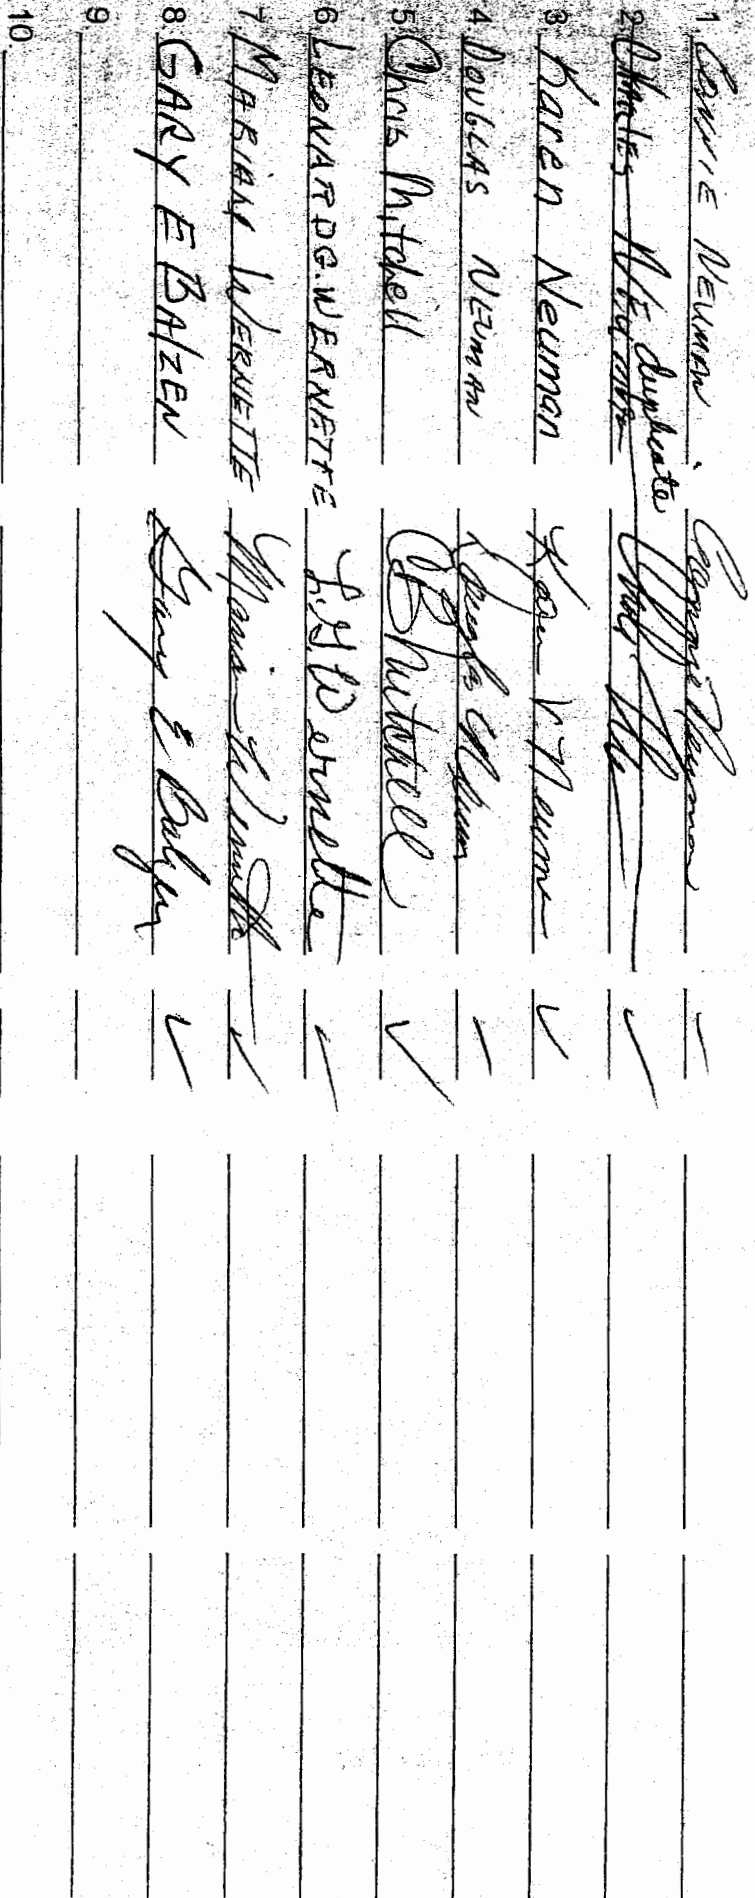 1. CONNIE NEUMAN Connie Neuman
duplicate
2. Charles
3. Karen Neuman Karen V. Neuman
4. DOUGLAS NEUMAN Douglas Neuman
5. Chris Mitchell CB Mitchell
6. LEONARD G. WERNETTE L.G. Wernette
7. MARIAN WERNETTE Marian Wernette
8. GARY E BALZEN Gary E Balzen
9
10.